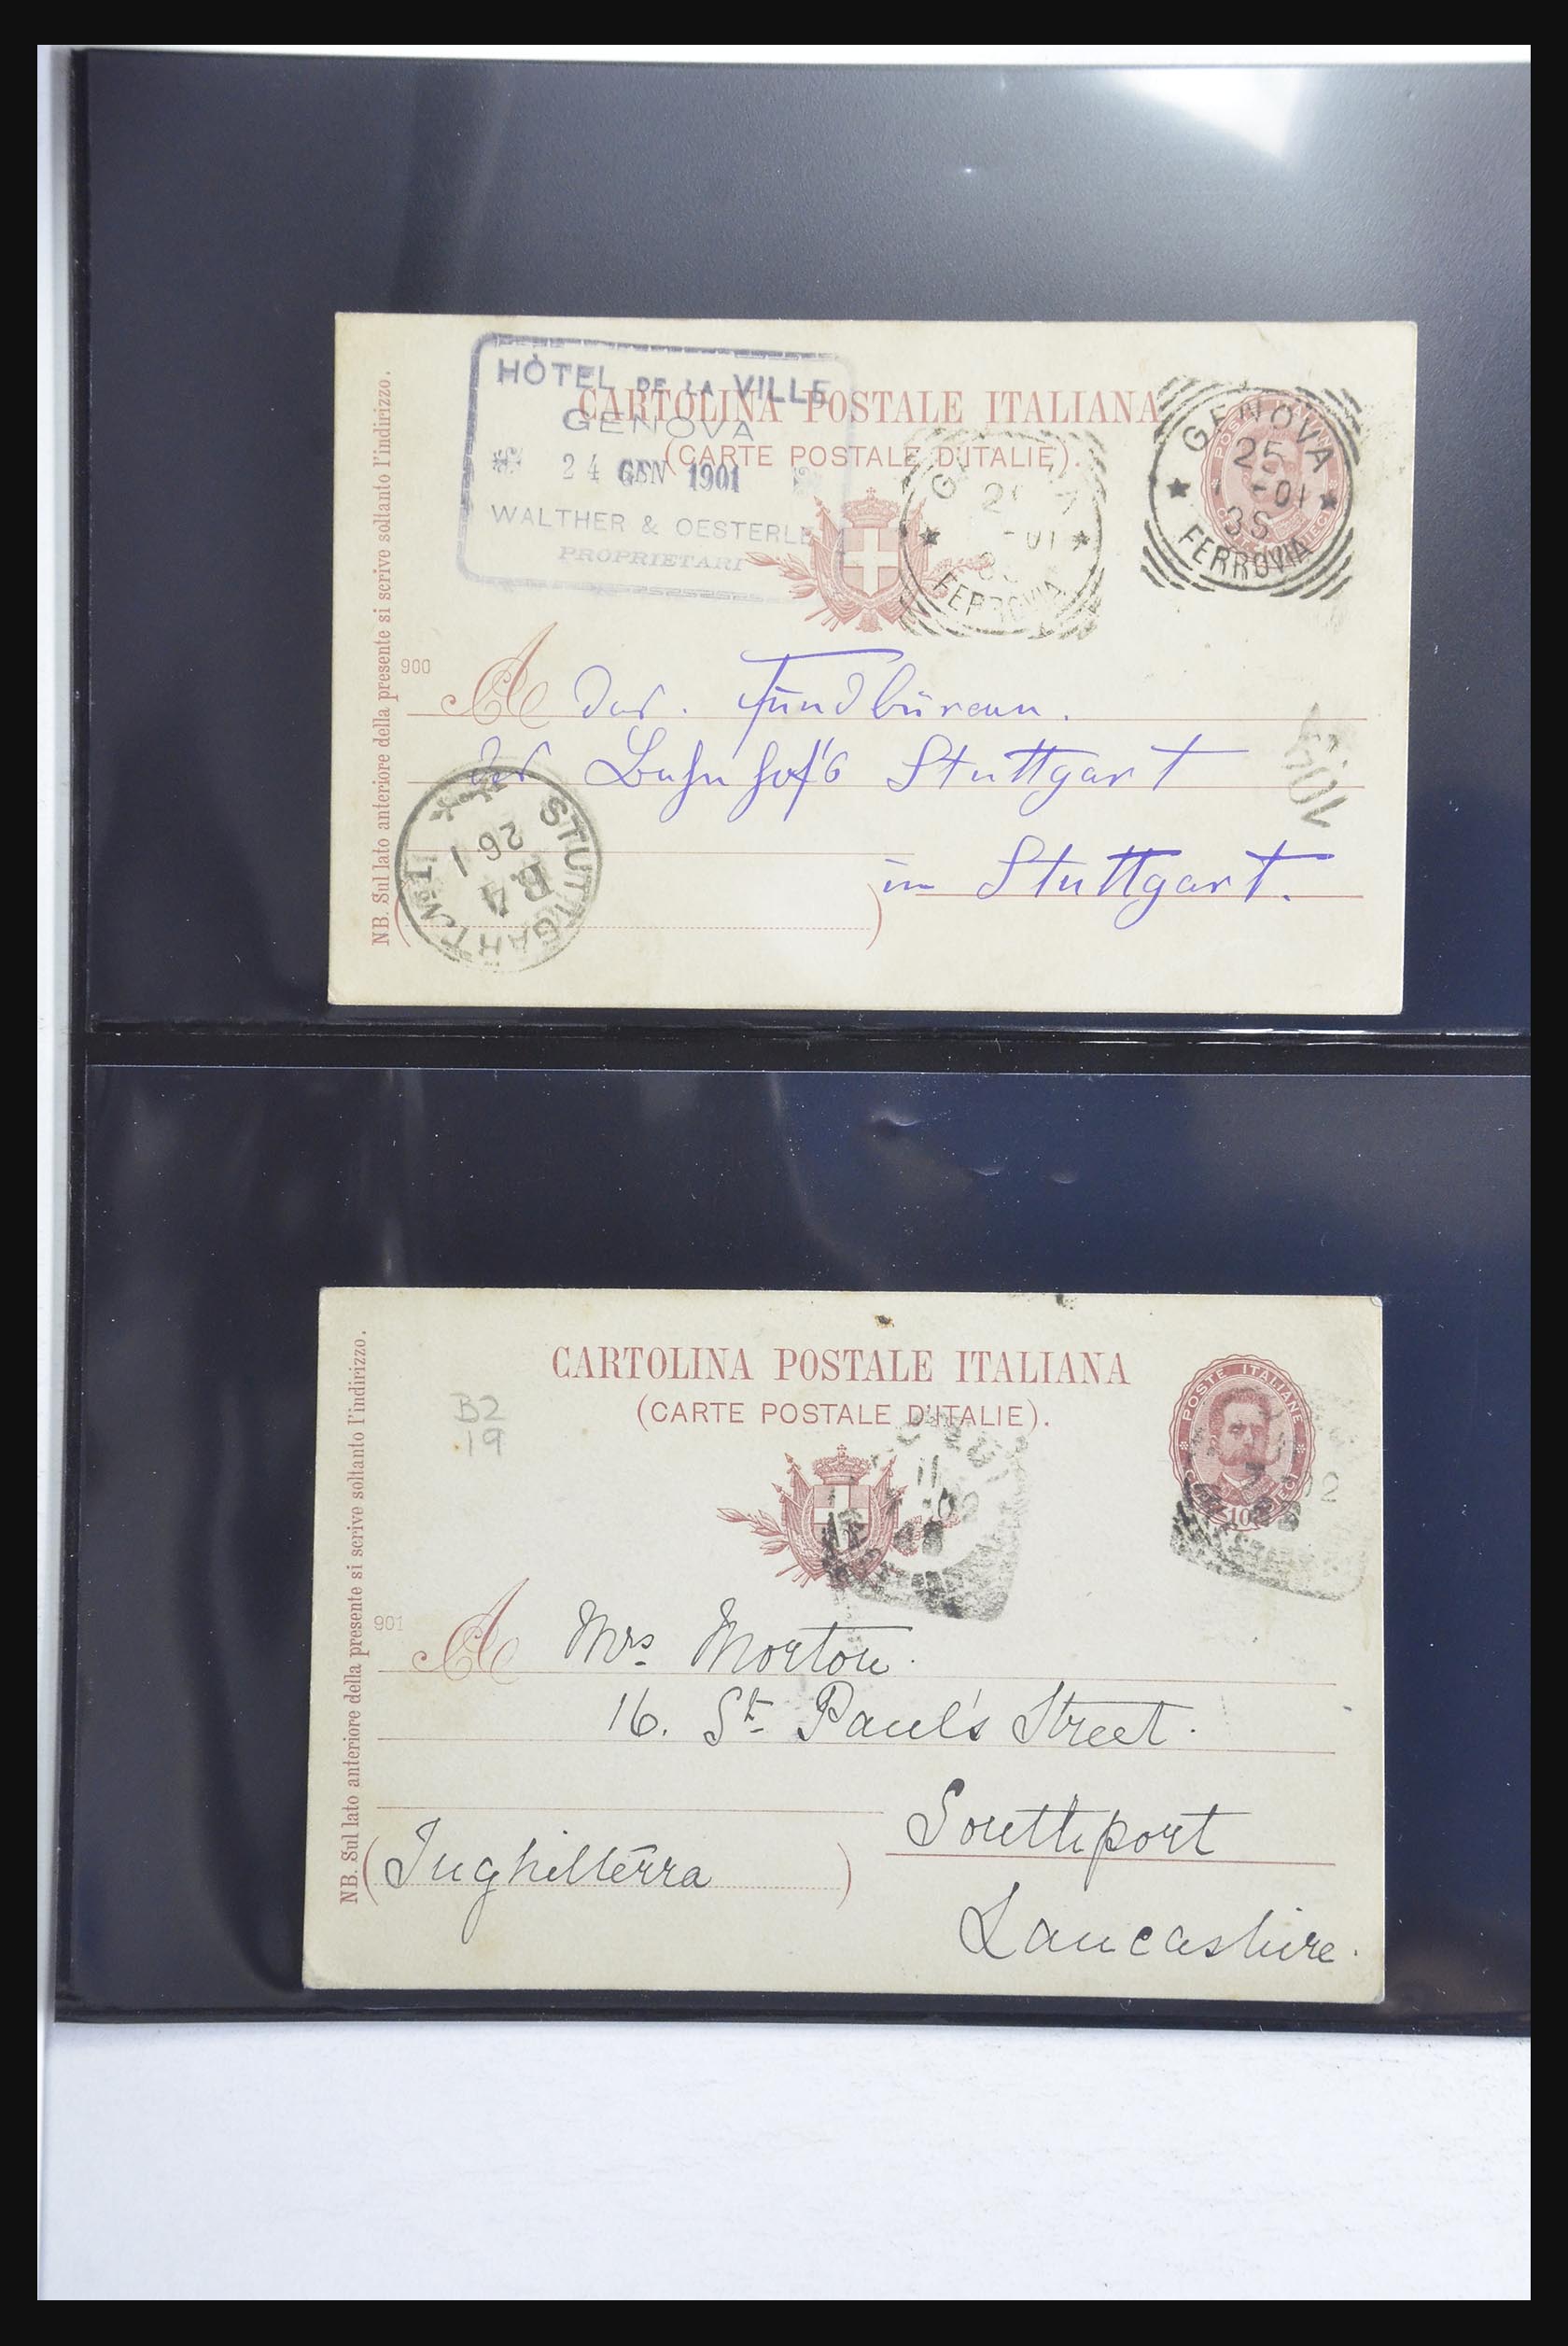 NB. Sul lato anteriore della presente si scrive soltanto l'indirizzo.
HÔTEL DE LA VILLE
GENOVA
24 GEN 1901
WALTHER & OESTERLE
PROPRIETARI
CARTOLINA POSTALE ITALIANA
(CARTE POSTALE D'ITALIE).
GENOVA
25
-01
3S
FERROVIA
-01
FERROVIA
900
A das. Fundbüreau.
des Bahnhof's Stuttgart
in Stuttgart.
STUTTGART No 1
26 1
B4
NB. Sul lato anteriore della presente si scrive soltanto l'indirizzo.
CARTOLINA POSTALE ITALIANA
(CARTE POSTALE D'ITALIE).
POSTE ITALIANE
10
B2
19
11
02
901
A Mrs Morton.
16. St. Paul's Street.
Southport
(Inghilterra)
Lancashire.